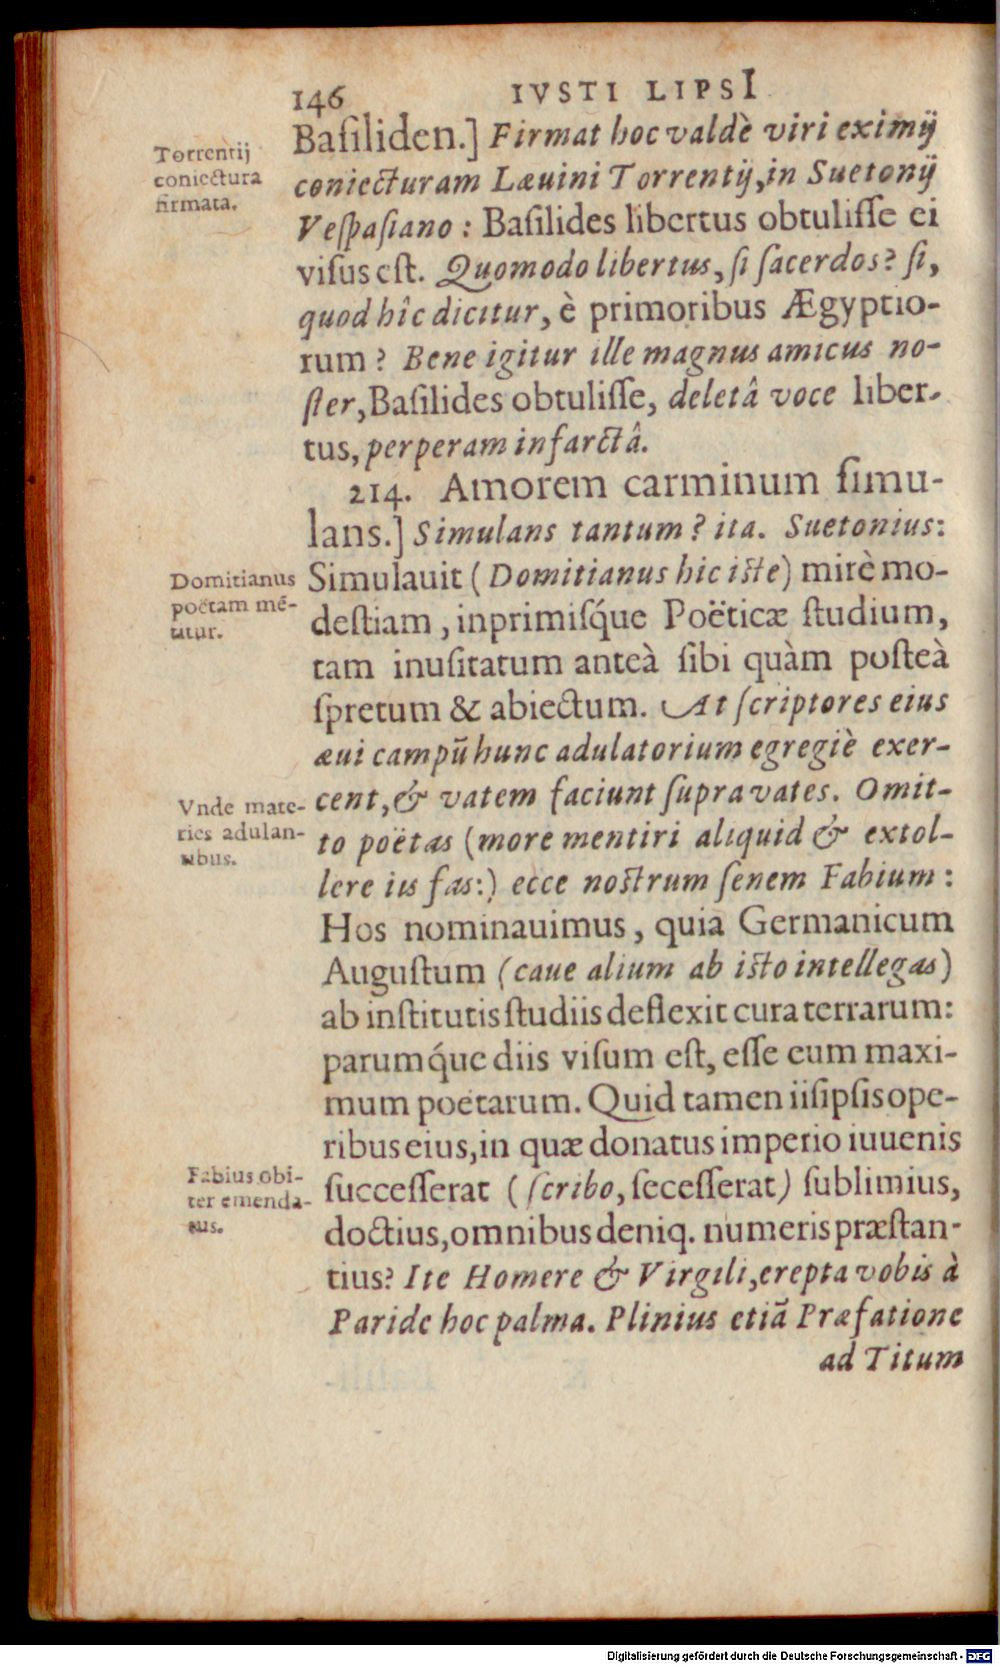 146 IVSTI LIPSI
Basiliden.] Firmat hoc valdè viri eximij
Torrentij
coniectura
firmata.
coniecturam Læuini Torrentij, in Suetonij
Vespasiano: Basilides libertus obtulisse ei
visus est. Quomodo libertus, si sacerdos? si,
quod hîc dicitur, è primoribus Ægyptio-
rum? Bene igitur ille magnus amicus no-
ster, Basilides obtulisse, deletâ voce liber-
tus, perperam infarctâ.
214. Amorem carminum simu-
lans.] Simulans tantum? ita. Suetonius:
Domitianus
poëtam mē-
titur.
Simulauit (Domitianus hic iste) mirè mo-
destiam, inprimisq́ue Poëticæ studium,
tam inusitatum anteà sibi quàm posteà
spretum & abiectum. At scriptores eius
æui campũ hunc adulatorium egregiè exer-
Vnde mate-
ries adulan-
tibus.
cent, & vatem faciunt supra vates. Omit-
to poëtas (more mentiri aliquid & extol-
lere ius fas:) ecce nostrum senem Fabium:
Hos nominauimus, quia Germanicum
Augustum (caue alium ab isto intellegas)
ab institutis studiis deflexit cura terrarum:
parumq́ue diis visum est, esse eum maxi-
mum poëtarum. Quid tamen iis ipsis ope-
ribus eius, in quæ donatus imperio iuuenis
Fabius obi-
ter emenda-
tus.
successerat (scribo, secesserat) sublimius,
doctius, omnibus deniq. numeris præstan-
tius? Ite Homere & Virgili, erepta vobis à
Paride hoc palma. Plinius etiã Præfatione
ad Titum
Digitalisierung gefördert durch die Deutsche Forschungsgemeinschaft - DFG